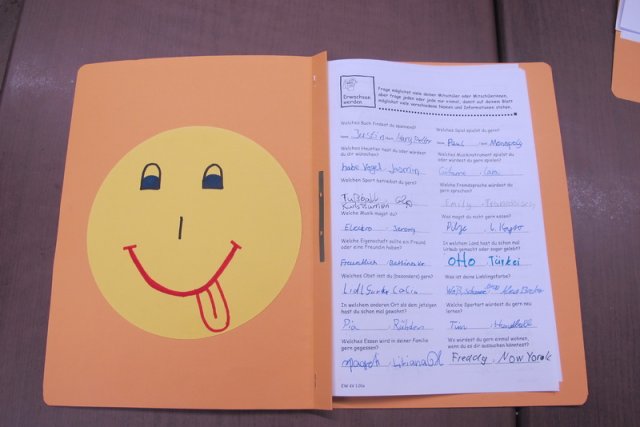 Erwachsen
werden
Frage möglichst viele deiner Mitschüler oder Mitschülerinnen,
aber frage jeden oder jede nur einmal, damit auf deinem Blatt
möglichst viele verschiedene Namen und Informationen stehen.
Welches Buch findest du spannend?
Justin Harry Potter
Welches Spiel spielst du gern?
Paul Monopoly
Welches Haustier hast du oder würdest
du dir wünschen?
habe Vogel Jasmin
Welches Musikinstrument spielst du
oder würdest du gern spielen?
Gitarre Lara
Welchen Sport betreibst du gern?
Fußball
Welche Fremdsprache würdest du
gern sprechen?
Emily Französisch
Welche Musik magst du?
Elektro Jeremy
Was magst du nicht gern essen?
Pilze
Welche Eigenschaft sollte ein Freund
oder eine Freundin haben?
Freundlich
In welchem Land hast du schon mal
Urlaub gemacht oder sogar gelebt?
Otto Türkei
Welches Obst isst du (besonders) gern?
Was ist deine Lieblingsfarbe?
In welchem anderen Ort als dem jetzigen
hast du schon mal gewohnt?
Pia
Welche Sportart würdest du gern neu
lernen?
Tim Handball
Welches Essen wird in deiner Familie
gern gegessen?
Wo würdest du gern einmal wohnen,
wenn du es dir aussuchen könntest?
Freddy New York